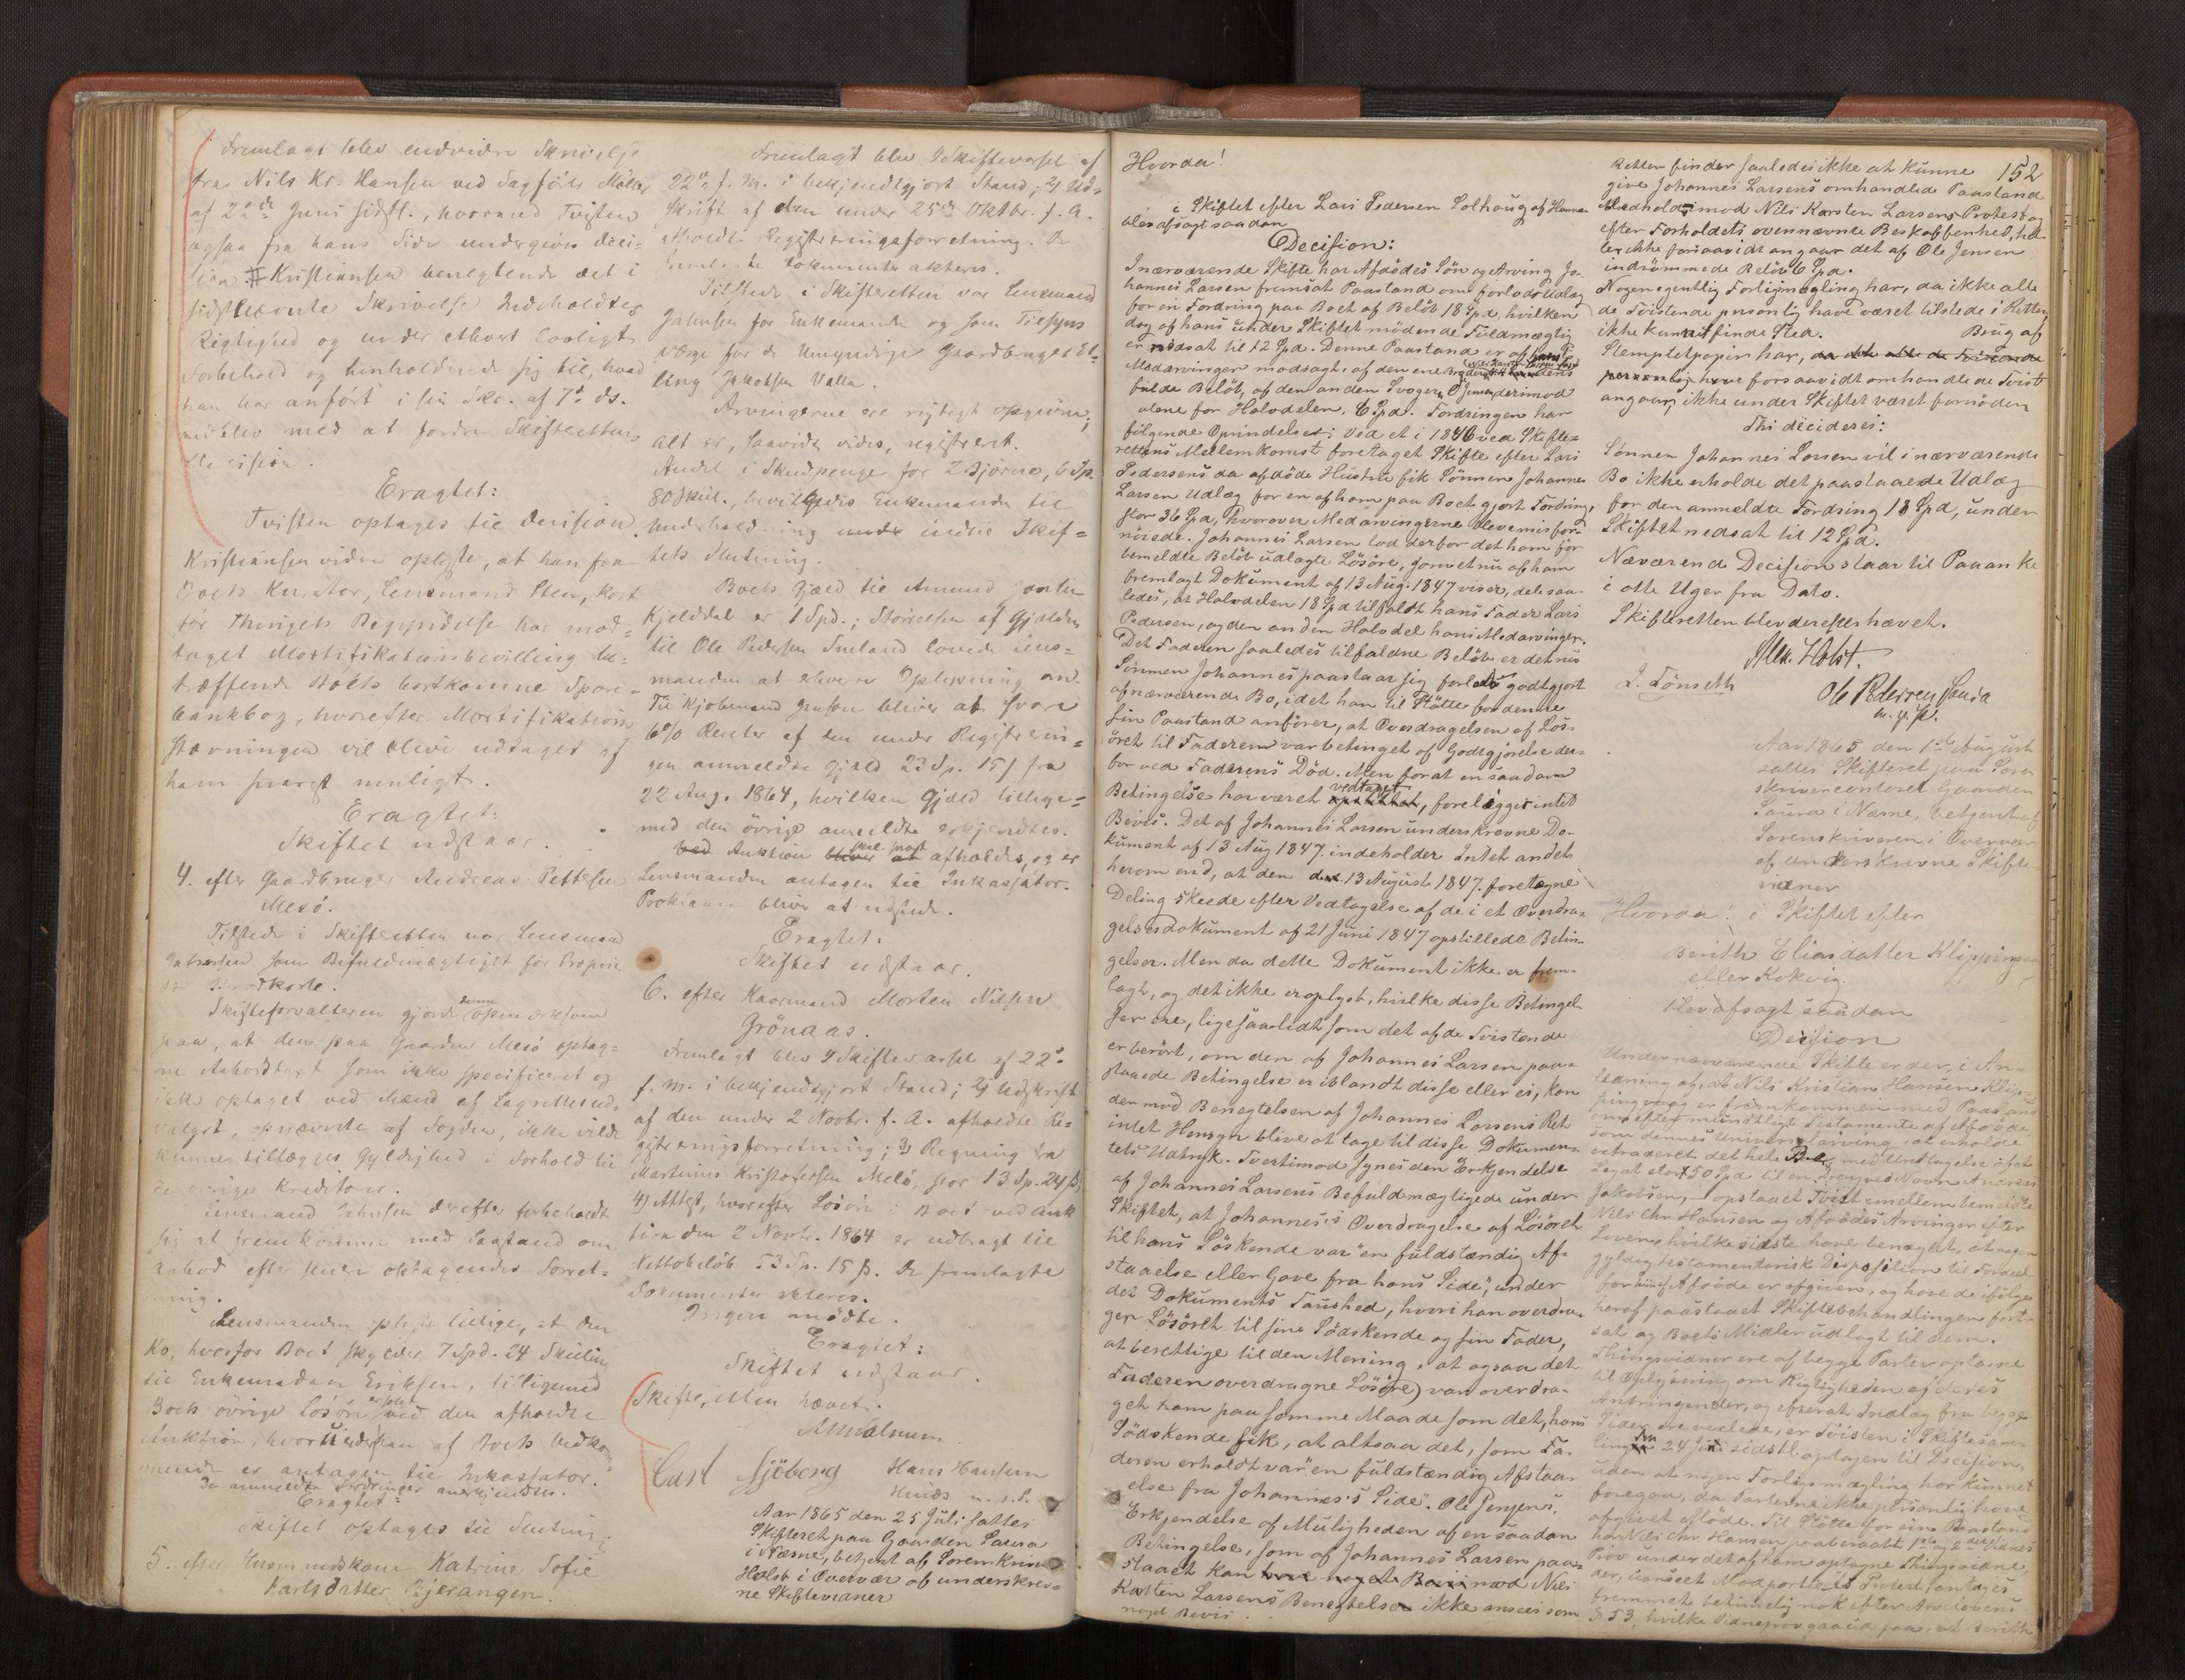 Fremlagt blev endvidere Skrivelse
fra Nils Kr. Hansen ved Sagfører Møller
af 22de Juni sidstl., hvormed Tvisten
ogsaa fra hans Side undergives Deci-
sion. Kristiansen benegtende det i
sidstnævnte Skrivelse Indeholdtes
Rigtighed og under ethvert lovligt
Forbehold og henholdende sig til, hvad
han har anført i sin Skr. af 7de ds.
nedblev med at fordre Skifterettens
Decision.
Eragtet:
Tvisten optages til Decision.
Kristiansen videre oplyste, at han fra
Boets Kurator, Lensmand Steen, kort
før Thingets Begyndelse har mod-
taget Mortifikationsbevilling be-
træffende Boets bortkomne Spare-
bankbog, hvorefter Mortifikations
stævningen vil blive udtaget af
ham snarest muligt.
Eragtet:
Skiftet udstaar.
4. efter Gaardbruger Andreas Pettersen
Mesö.
Tilstede i Skifteretten var Lensmand
Jakobsen som Befuldmægtiget for Proprie
tær Brodkorb.
Skifteforvalteren gjorde denne opmærksom
paa, at den paa Gaarden Mesö optag-
ne Aabodstaxt som ikke specificeret og
ikke optaget ved Mænd af Lagrettesud-
valget, opnævnte af Fogden, ikke vilde
kunne tillægges Gyldighed i Forhold til
øvrige Kreditorer.
Lensmand Jahnsen derefter forbeholdt
sig at fremkomme med Paastand om
Aabod efter senere optagendes Forret-
ning.
Lensmanden oplyste tillige, at den
Ko, hvorfor Boet skylder 7 Spd. 24 Skilling
til Enkemadam Eriksen, tilligemed
Boets övrige Lösöre er solgt ved den afholdte
Auktion, hvortil ogsaa af Boets Vedkom-
mende er antagen til Inkassator.
De anmeldte Fordringer anerkjendtes.
Eragtet:
Skiftet optages til Slutning.
5. efter Husmandskone Katrine Sofie
Karlsdatter Bjerangen.
Fremlagt blev 1 Skiftevarsel af
22de f. M. i bekjendtgjort Stand; 2) Ud-
skrift af den under 25de Oktbr. f. A.
afholdte Registreringsforretning. De
fremlagte Dokumenter akteres.
Tilstede i Skifteretten var Lensmand
Jahnsen for Enkemanden og som Tilsyns
værge for de Umyndige Gaardbruger El-
ling Jakobsen Valla.
Arvingerne ere rigtigt opgivne;
alt er, saavidt vides, registreret.
Andel i Skudpenge for 2 Björne, 6 Sp.
80 Skill., bevilgedes Enkemanden til
Underholdning under Skif-
tets Slutning.
Boets Gjæld til Amund Jonsen
Kjelddal er 1 Spd.; Störrelsen af Gjælden
til Ole Pedersen Sneland lovede Lens-
manden at erhverve Oplysning om.
Til Kjöbmand Jensen bliver at svare
6% Renter af den under Registrerin-
gen anmeldte Gjæld 23 Sp. 15 ß fra
22 Aug. 1864, hvilken Gjæld tillige-
med den övrige anmeldte erkjendtes.
Auktion skal snart afholdes, og er
Lensmanden antagen til Inkassator.
Proklama bliver at udstede.
Eragtet:
Skiftet udstaar.
6. efter Kaarmand Morten Nilsen
Grönaas.
Fremlagt blev 1 Skiftevarsel af 22de
f. M. i bekjendtgjort Stand; 2) Udskrift
af den under 2 Novbr. f. A. afholdte Re-
gistreringsforretning; 3) Regning fra
Martinus Kristofersen Melö, stor 13 Sp. 24 ß;
4) Attest, hvorefter Lösöre i Boet ved Auk-
tion den 2 Novbr. 1864 er udbragt til
Nettobelöb 53 Sp. 15 ß. De fremlagte
Dokumenter akteres.
Ingen mödte.
Eragtet:
Skiftet udstaar.
Skifteretten hævet.
Carl Sjöberg Hans Hansen
m. p. P.
Aar 1865 den 25 Juli sattes
Skifteret paa Gaarden Saura
i Næsne, betjent af Sorenskriver
Holst i Overvær af underskrev-
ne Skiftevidner
Hvorda!
i Skiftet efter Lars Pedersen Solhaug af Hemnes
blev afsagt saadan
Decision:
I nærværende Skifte har Afdödes Sön og Arving Jo-
hannes Larsen fremsat Paastand om forlods Udlæg
for en Fordring paa Boet af Belöb 18 Spd, hvilken
dog af hans under Skiftet mödende Fuldmægtig
er nedsat til 12 Spd. Denne Paastand er af hans
Medarvinger modsagt, af den ene Broder Nils Karsten Larsen for det
fulde Belöb, af den anden Svogeren O Jensen derimod
alene for Halvdelen, 6 Spd. Fordringen har
fölgende Oprindelse: Ved et i 1846 ved Skifte-
rettens Mellemkomst foretaget Skifte efter Lars
Pedersens da afdöde Hustru fik Sönnen Johannes
Larsen Udlæg for en af ham paa Boet gjort Fordring,
stor 36 Spd, hvorover Medarvingerne bleve misfor-
nöiede. Johannes Larsen lod derfor det ham for
bemeldte Belöb udlagte Lösöre, som et nu af ham
fremlagt Dokument af 13 Aug. 1847 viser, dele saa-
ledes, at Halvdelen 18 Spd tilfaldt hans Fader Lars
Pedersen, og den anden Halvdel hans Medarvinger.
Det Faderen saaledes tilfaldne Belöb er det nu
Sönnen Johannes paastaar sig forlods godtgjort
af nærværende Bo, idet han til Stötte for denne
sin Paastand anförer, at Overdragelsen af Lös-
öret til Faderen var betinget af Godtgjörelse der-
for ved Faderens Död. Men for at en saadan
Betingelse har været vedtaget, forelægges intet
Bevis. Det af Johannes Larsen underskrevne Do-
kument af 13 Aug 1847. indeholder Intet andet
herom end, at den 13 August 1847. foretagne
Deling skeede efter Vedtagelse af de i et Overdra-
gelsesdokument af 21 Juni 1847 opstillede Betin-
gelser. Men da dette Dokument ikke er frem-
lagt, og det ikke er oplyst, hvilke disse Betingel-
ser ere, ligesaalidt som det af de Tvistende
er berört, om den af Johannes Larsen paa-
staaede Betingelse er iblandt disse eller ei, kan
der mod Benegtelsen af Johannes Larsens Ret
intet Hensyn blive at tage til disse Dokumen-
ters Udtryk. Tvertimod synes den Erkjendelse
af Johannes Larsens Befuldmægtigede under
Skiftet, at Johannes's Overdragelse af Lösöret
til hans Söskende var "en fuldstændig Af-
staaelse eller Gave fra hans Side", under
det Dokuments Taushed, hvori han overdra-
ger Lösöret til sine Södskende og sin Fader,
at berettige til den Mening, at ogsaa det
Faderen overdragne Lösöre var overdra-
get ham paa samme Maade som det, hans
Södskende fik, at altsaa det, som Fa-
deren erholdt var "en fuldstændig Afstaa-
else fra Johannes's Side". Ole Jensens
Erkjendelse af Muligheden af en saadan
Betingelse, som af Johannes Larsen paa-
staaet kan mod Nils
Karsten Larsens Benegtelse ikke ansees som
noget Bevis.
152
Retten finder saaledes ikke at kunne
give Johannes Larsens omhandlede Paastand
Medhold imod Nils Karsten Larsens Protest og
efter Forholdets ovennævnte Beskaffenhed, hel-
ler ikke forsaavidt angaar det af Ole Jensen
indrömmede Belöb 6 Spd.
Nogen egentlig Forligsmægling har, da ikke alle
de Tvistende personlig have været tilstede i Retten,
ikke kunnet finde Sted. Brug af
Stempletpapir har, da ikke alle de Tvistende
personlig have forsaavidt omhandlede Tvist
angaar, ikke under Skiftet været fornöden
Thi decideres:
Sönnen Johannes Larsen vil i nærværende
Bo ikke erholde det paastaaede Udlæg
for den anmeldte Fordring 18 Spd, under
Skiftet nedsat til 12 Spd.
Nærværende Decision staar til Paaanke
i otte Uger fra Dato.
Skifteretten blev derefter hævet.
Alex. Holst.
L. Tönseth
Ole Pedersen Saura
m. p. P.
Aar 1865 den 1ste August
sattes Skifteret paa Soren
skrivercontoret Gaarden
Saura i Næsne, betjent af
Sorenskriveren i Overvær
af underskrevne Skifte
vidner
Hvorda! i Skiftet efter
Berith Eliasdatter Klipping
eller Kokvig
blev afsagt saadan
Decision
Under nærværende Skifte er der, i An-
ledning af, at Nils Kristian Hansen Klip-
pingvaag er fremkommen med Paastand
om efter mundtligt Testamente af Afdöde
som dennes Universalarving at erholde
extraderet det hele Bo, med Undtagelse af et
Legat stort 50 Spd til en Dreng ved Navn Anders
Jakobsen, opstaaet Tvist mellem bemeldte
Nils Chr Hansen og Afdödes Arvinger efter
Loven, hvilke sidste have benægtet, at nogen
gyldig testamentarisk Disposition til Fordeel
for af Afdöde er afgiven, og have de ifölge
heraf paastaaet Skiftebehandlingen fort-
sat og Boets Midler udlagt til dem.
Thingsvidner ere af begge Parter optagne
til Oplysning om Rigtigheden af deres
Anbringender, og efterat Indlæg fra begge
Sider ere vexlede, er Tvisten i Skiftesam-
ling den 24 Juni sidstl. optagen til Decision,
uden at nogen Forligsmægling har kunnet
foregaa, da Parterne ikke personlig have
afgivet Möde. Til Stötte for sin Paastand
har Nils Chr. Hansen paaberaabt 1ste og 2det Vidnes
Prov under det af ham optagne Thingsvidne,
der, uanseet Modpartens Protest, antages
fremmet betimelig nok efter Arvelovens
§ 53, hvilke Vidneprov gaa ud paa, at Berith